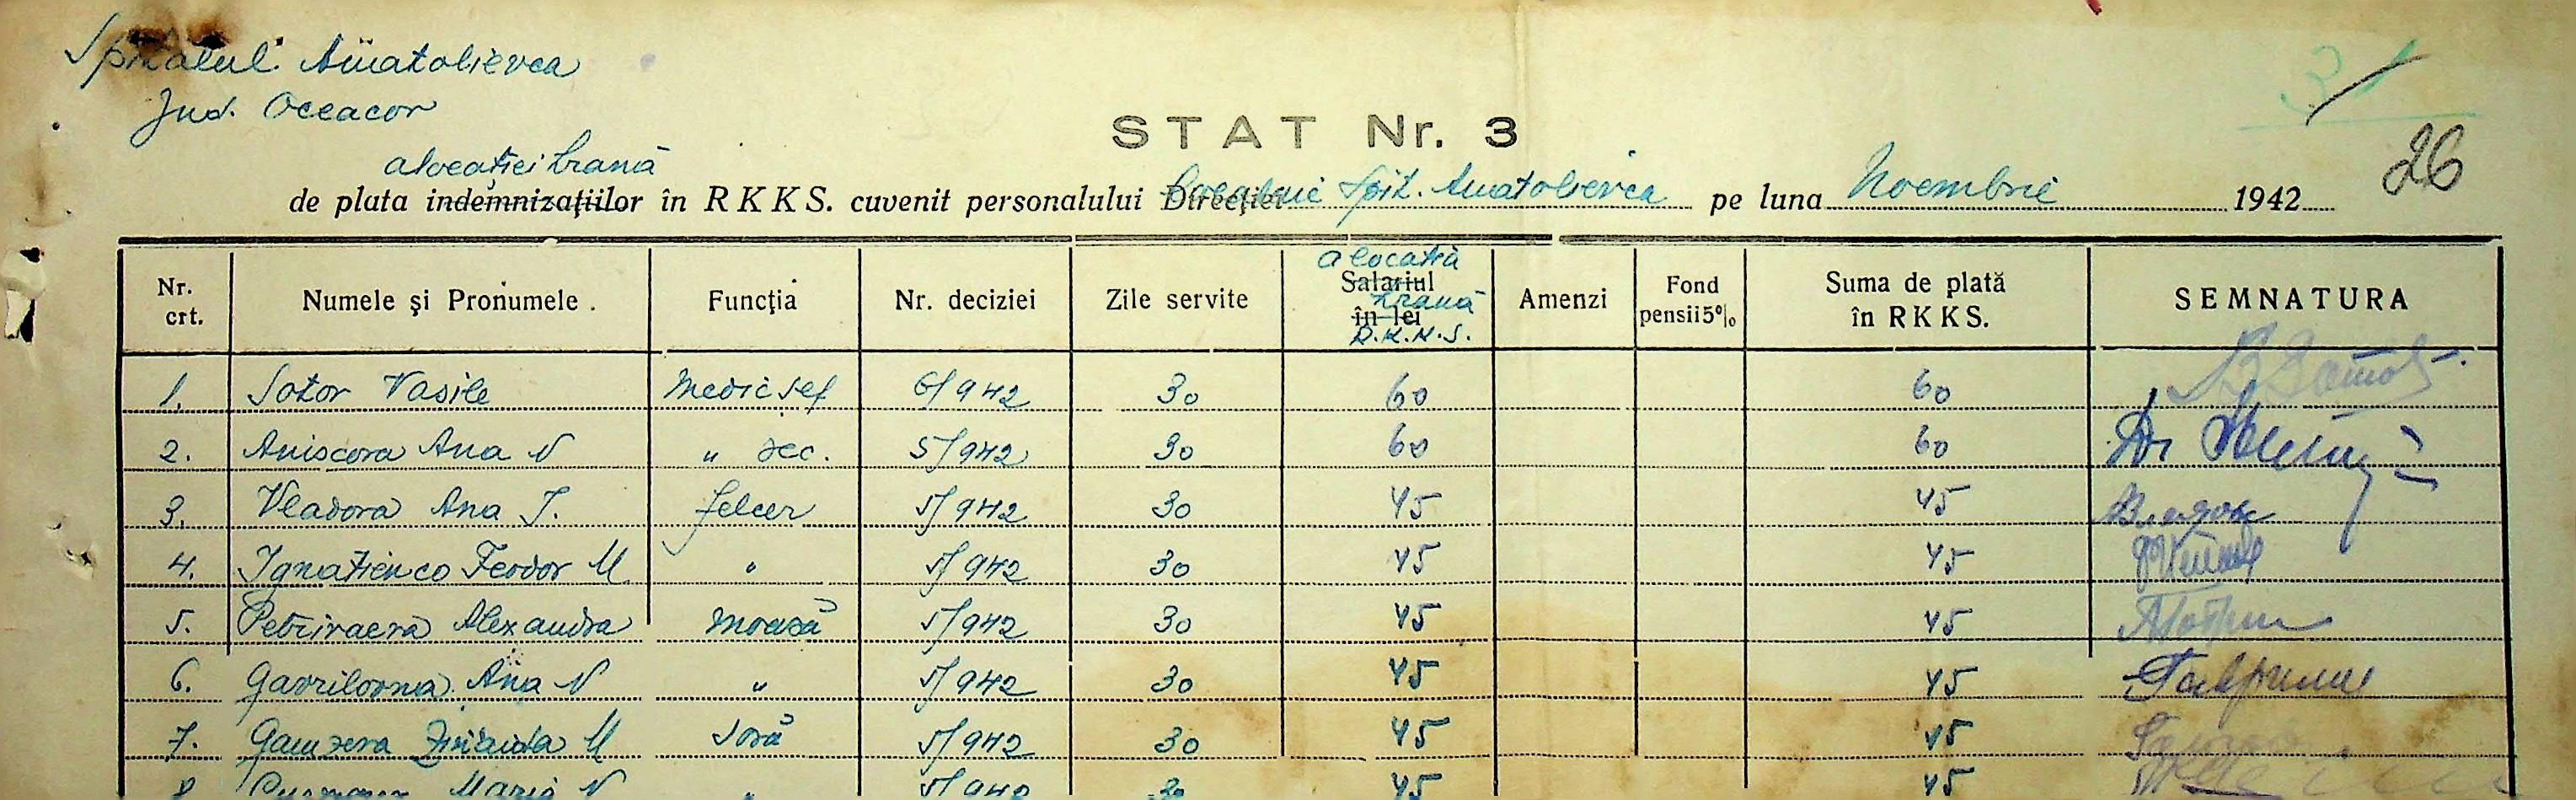 Spitalul Anatolievca
Jud. Oceacov
31
26
STAT Nr. 3
alocației hrană
de plata indemnizaţiilor în RKKS. cuvenit personalului Direcţiei Spit. Anatolievca pe luna Noembrie 1942
Nr. crt. Numele şi Pronumele. Funcţia Nr. deciziei Zile servite Salariul în lei alocatia hrană R.K.K.S. Amenzi Fond pensii 5% Suma de plată în RKKS. SEMNATURA
1. Sotov Vasile Medic șef 6/942 30 60 60
2. Aniscova Ana N " sec. 5/942 30 60 60 Dr
3. Vladova Ana I. felcer 5/942 30 45 45
4. Ignatienco Feodor M. " 5/942 30 45 45
5. Alexandra Moașă 5/942 30 45 45
6. Gavrilovna Ana N " 5/942 30 45 45
7. Zinaida M Soră 5/942 30 45 45
8. Maria N " 5/942 30 45 45